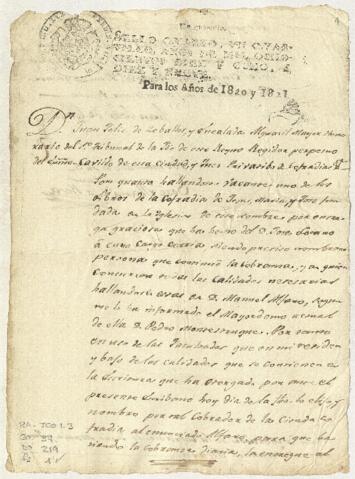 SELLO QUARTO, UN QUAR-
TILLO, AÑOS DE MIL OCHO-
CIENTOS DIEZ Y OCHO, Y
DIEZ Y NUEVE.
Para los Años de 1820 y 1821
Dn Juan Felix de
y Encalada Alguacil Mayor
del Sto Tribunal de la de este Reyno Regidor perpetuo
del Cavildo de esta Ciudad, y Juez Privativo de Cofradias &a
Por quanto hallandose vacante uno de los
libros de la Cofradia de Jesus, Maria, y Jose fun-
dada en la Iglesia de este nombre, por
graciosa que ha hecho D. Jose
á cuyo cargo corria, siendo preciso nombrar
persona que continue la cobranza, y en quien
concurran todas las calidades necesarias
hallandose estas en D. Manuel Alfaro, segun
me lo ha informado el Mayordomo actual
de ella D. Pedro Por tanto
en uso de las facultades que en mi residen
y bajo de las calidades que se contienen en
la Escritura que ha otorgado, por ante el
presente Escribano hoy dia de la fha. lo elijo y
nombro por tal Cobrador de la Citada Co-
fradia al enunciado Alfaro, para que ha-
ciendo la cobranza diaria, la entregue al